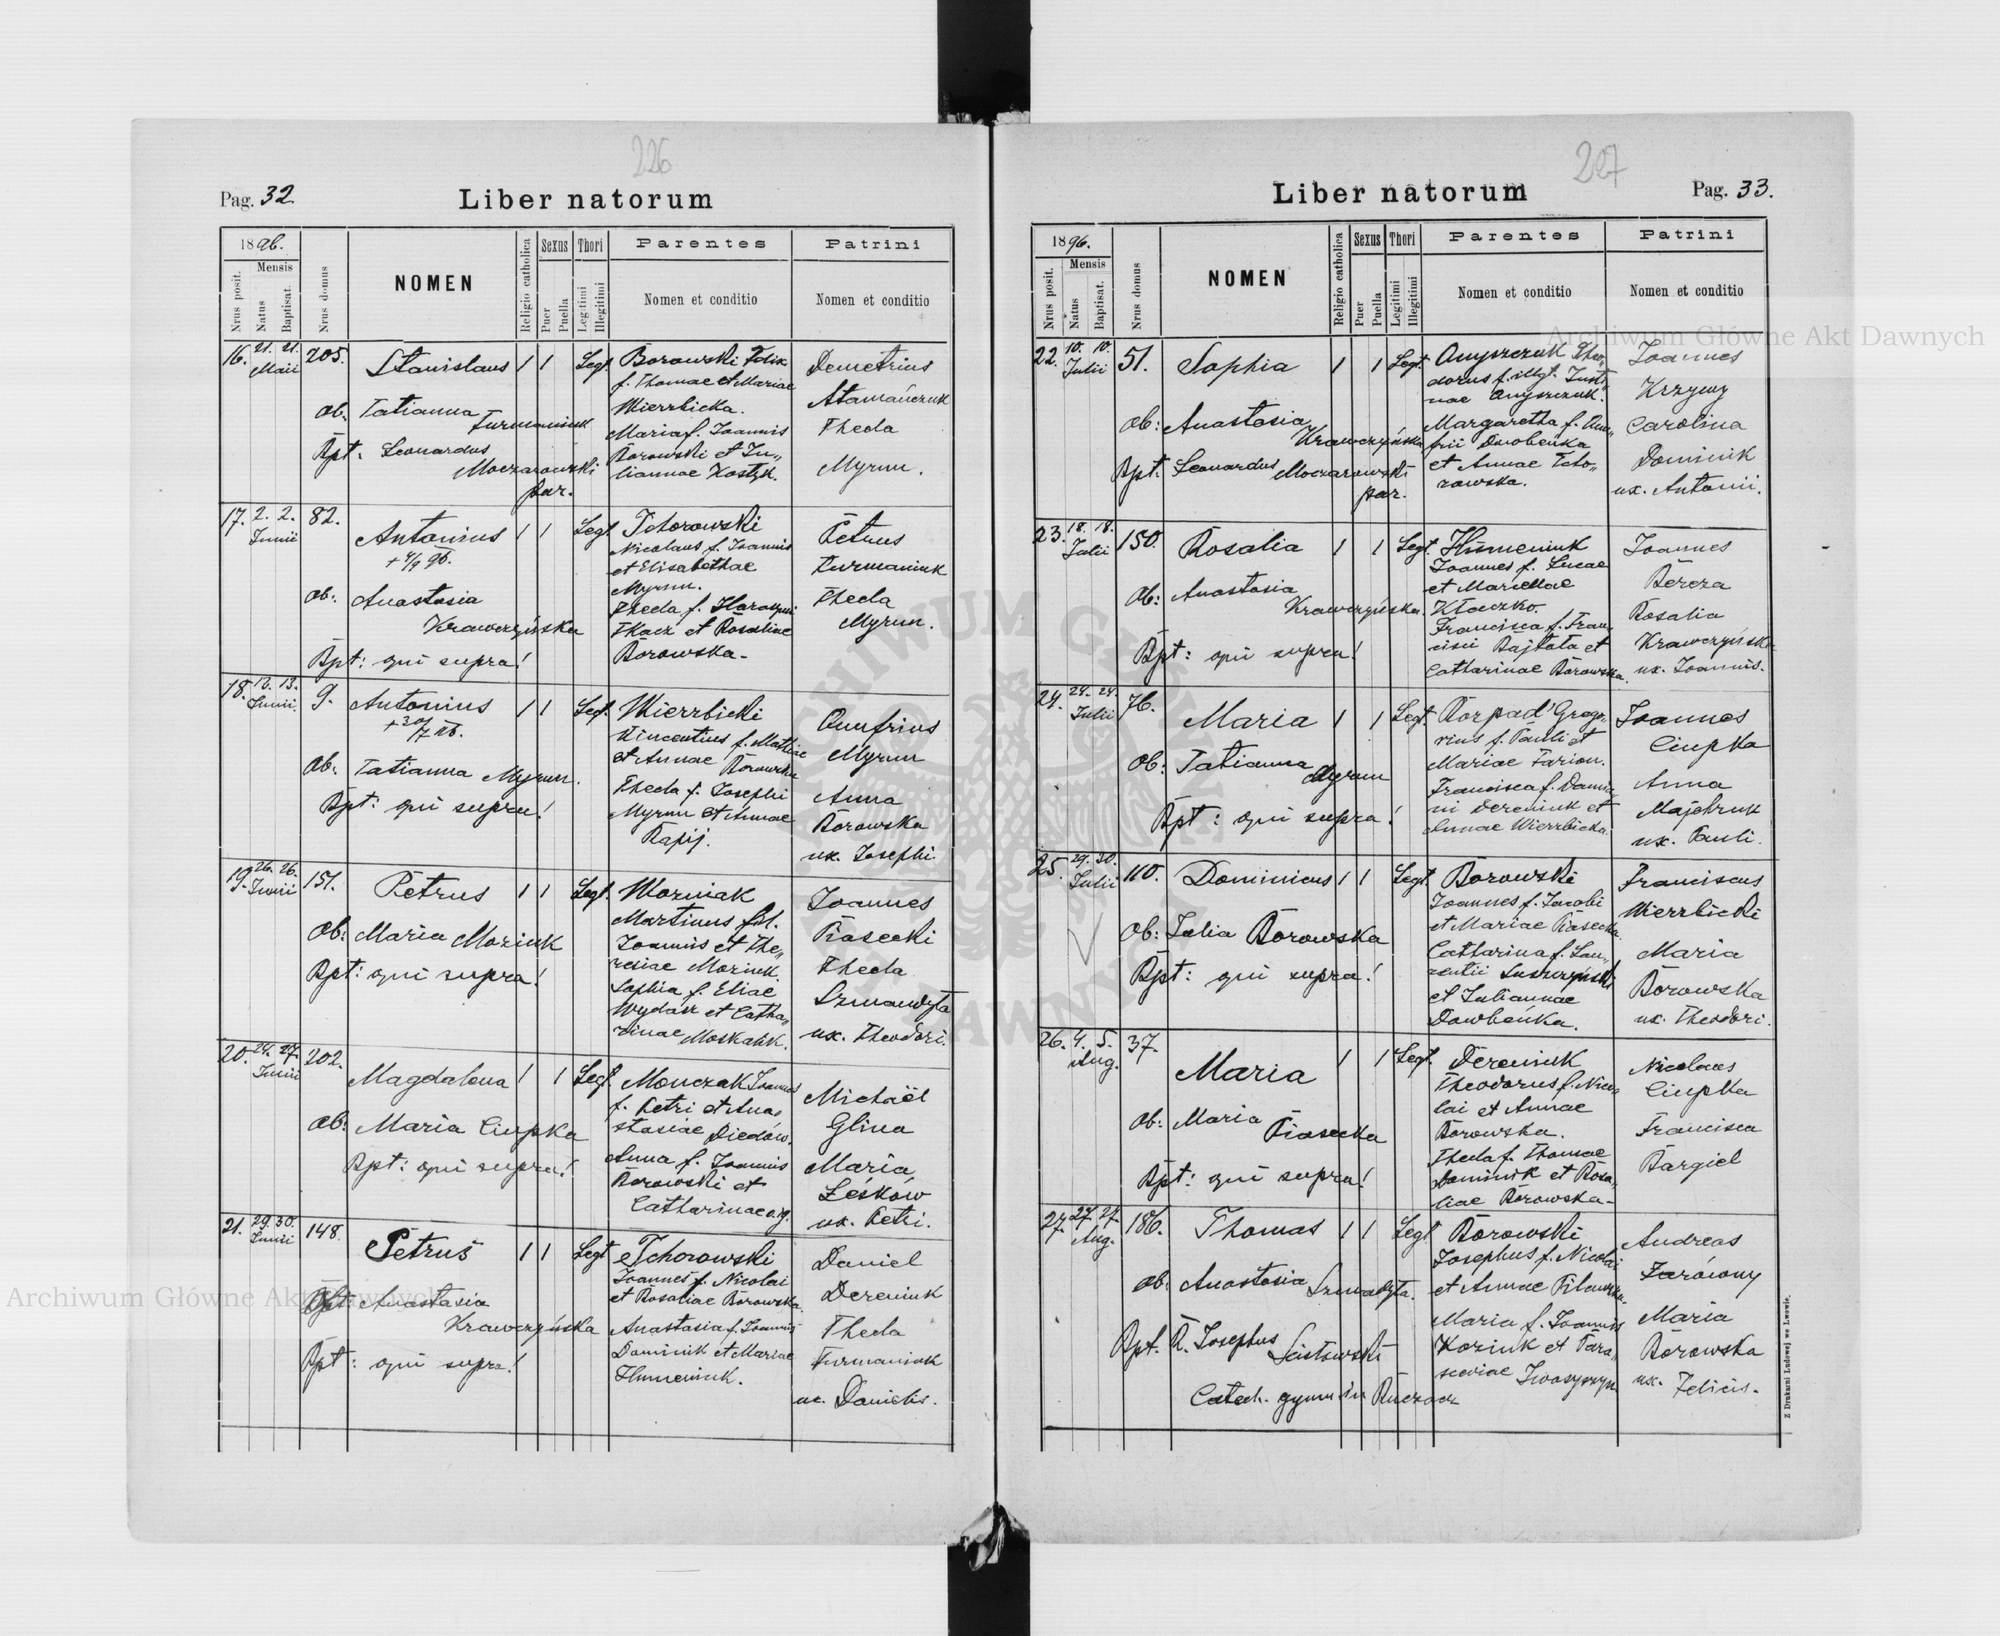 226
Pag. 32.
Liber natorum
1896.
Nrus posit.
Mensis
Natus
Baptisat.
Nrus domus
NOMEN
Religio catholica
Sexus
Puer
Puella
Thori
Legitimi
Illegitimi
Parentes
Nomen et conditio
Patrini
Nomen et conditio
16. 21. 21. Maii 205. Stanislaus 1 1 Legt.
Ob. Tatianna
Furmaniuk
Bpt. Leonardus
Moczarowski
par.
Borowski Felix
f. Thomae et Mariae
Wierzbicka.
Maria f. Joannis
Borowski et Ju„
liannae Kostyk.
Demetrius
Atamańczuk
Thecla
Myrun.
17. 2. 2. Junii 82. Antonius 1 1 Legt.
+ 4/9 96.
Ob: Anastasia
Krawczyńska
Bpt: qui supra!
Tchorowski
Nicolaus f. Joannis
et Elisabethae
Myrun.
Thecla f.
Tkacz et Rosaliae
Borowska-
Petrus
Furmaniuk
Thecla
Myrun.
18. 13. 13. Junii. 9. Antonius 1 1 Legt.
Ob: Tatianna Myrun.
Bpt: qui supra!
Wierzbicki
Vincentius f. Mathiae
et Annae Borowska
Thecla f. Josephi
Myrun et Annae
Kapij.
Onufrius
Myrun
Anna
Borowska
ux. Josephi.
19. 26. 26. Junii 151. Petrus 1 1 Legt.
Ob: Maria Moziuk
Bpt: qui supra!
Wozniak
Martinus fil.
Joannis et The„
resiae Moziuk.
Sophia f. Eliae
Wydasz et Catha„
rinae Moskaluk.
Joannes
Piasecki
Thecla
Szmandyta
ux. Theodori.
20. 27. 27. Junii 202. Magdalena 1 1 Legt.
Ob: Maria Ciupka
Bpt: qui supra!
Monczak Joannes
f. Petri et Ana„
stasiae Diedów.
Anna f. Joannis
Borowski et
Catharinae
Michaël
Glina
Maria
Leśków
ux. Petri.
21. 29. 30. Junii 148. Petrus 1 1 Legt
Anastasia
Krawczyńska
Bpt: qui supra!
Tchorowski
Joannes f. Nicolai
et Rosaliae Borowska.
Anastasia f. Joannis
Dominik et Mariae
Humeniuk.
Daniel
Dereniuk
Thecla
Furmaniuk
ux. Danielis.
227
Liber natorum
Pag. 33.
1896.
Nrus posit.
Mensis
Natus
Baptisat.
Nrus domus
NOMEN
Religio catholica
Sexus
Puer
Puella
Thori
Legitimi
Illegitimi
Parentes
Nomen et conditio
Patrini
Nomen et conditio
22. 10. 10. Julii 51. Sophia 1 1 Legt.
Ob: Anastasia
Krawczyńska
Bpt: Leonardus Moczarowski
par.
Onyszczuk Theo„
dorus f. illgt. Justi„
nae Onyszczuk.
Margaretha f. Onu„
frii Dowbeńka
et Annae Tcho„
rowska.
Joannes
Krzywy
Carolina
Dominik
ux. Antonii.
23. 18. 18. Julii 150. Rosalia 1 1 Legt.
Ob: Anastasia
Krawczyńska.
Bpt: qui supra!
Humeniuk
Joannes f. Lucae
et Mariae
Kłaczko.
Francisca f. Fran„
cisci Bajtała et
Catharinae Borowska.
Joannes
Bereza
Rosalia
Krawczyńska
ux. Joannis.
24. 24. 24. Julii 76. Maria 1 1 Legt.
Ob: Tatianna
Myrun
Bpt: qui supra!
Korpad Grego„
rius f. Pauli et
Mariae Farion.
Francisca f. Damia
ni Dereniuk et
Annae Wierzbicka.
Joannes
Ciupka
Anna
Majchruk
ux. Pauli.
25. 29. 30. Julii 110. Dominicus 1 1 Legt.
Ob: Julia Borowska
Bpt: qui supra!
Borowski
Joannes f. Jacobi
et Mariae Piasecka.
Catharina f. Lau„
rentii Suszczyński
et Juliannae
Dowbeńka.
Franciscus
Wierzbicki
Maria
Borowska
ux. Theodori.
26. 4. 5. Aug. 37. Maria 1 1 Legt.
Ob: Maria
Piasecka
Bpt: qui supra!
Dereniuk
Theodorus f. Nico„
lai et Annae
Borowska.
Thecla f. Thomae
Dominik et Rosa„
liae Borowska-
Nicolaus
Ciupka
Francisca
Bargiel
27. 27. 27. Aug. 186. Thomas 1 1 Legt
Ob: Anastasia Szmandyta.
Bpt. R. Josephus
Catech. gymn in Buczacz
Borowski
Josephus f. Nicolai
et Annae
Maria f. Joannis
Koziuk et Para„
sceviae
Andreas
Zarówny
Maria
Borowska
ux. Felicis.
Z Drukarni Ludowej we Lwowie.
Archiwum Główne Akt Dawnych
Archiwum Główne Akt Dawnych
ARCHIWUM GŁÓWNE AKT DAWNYCH